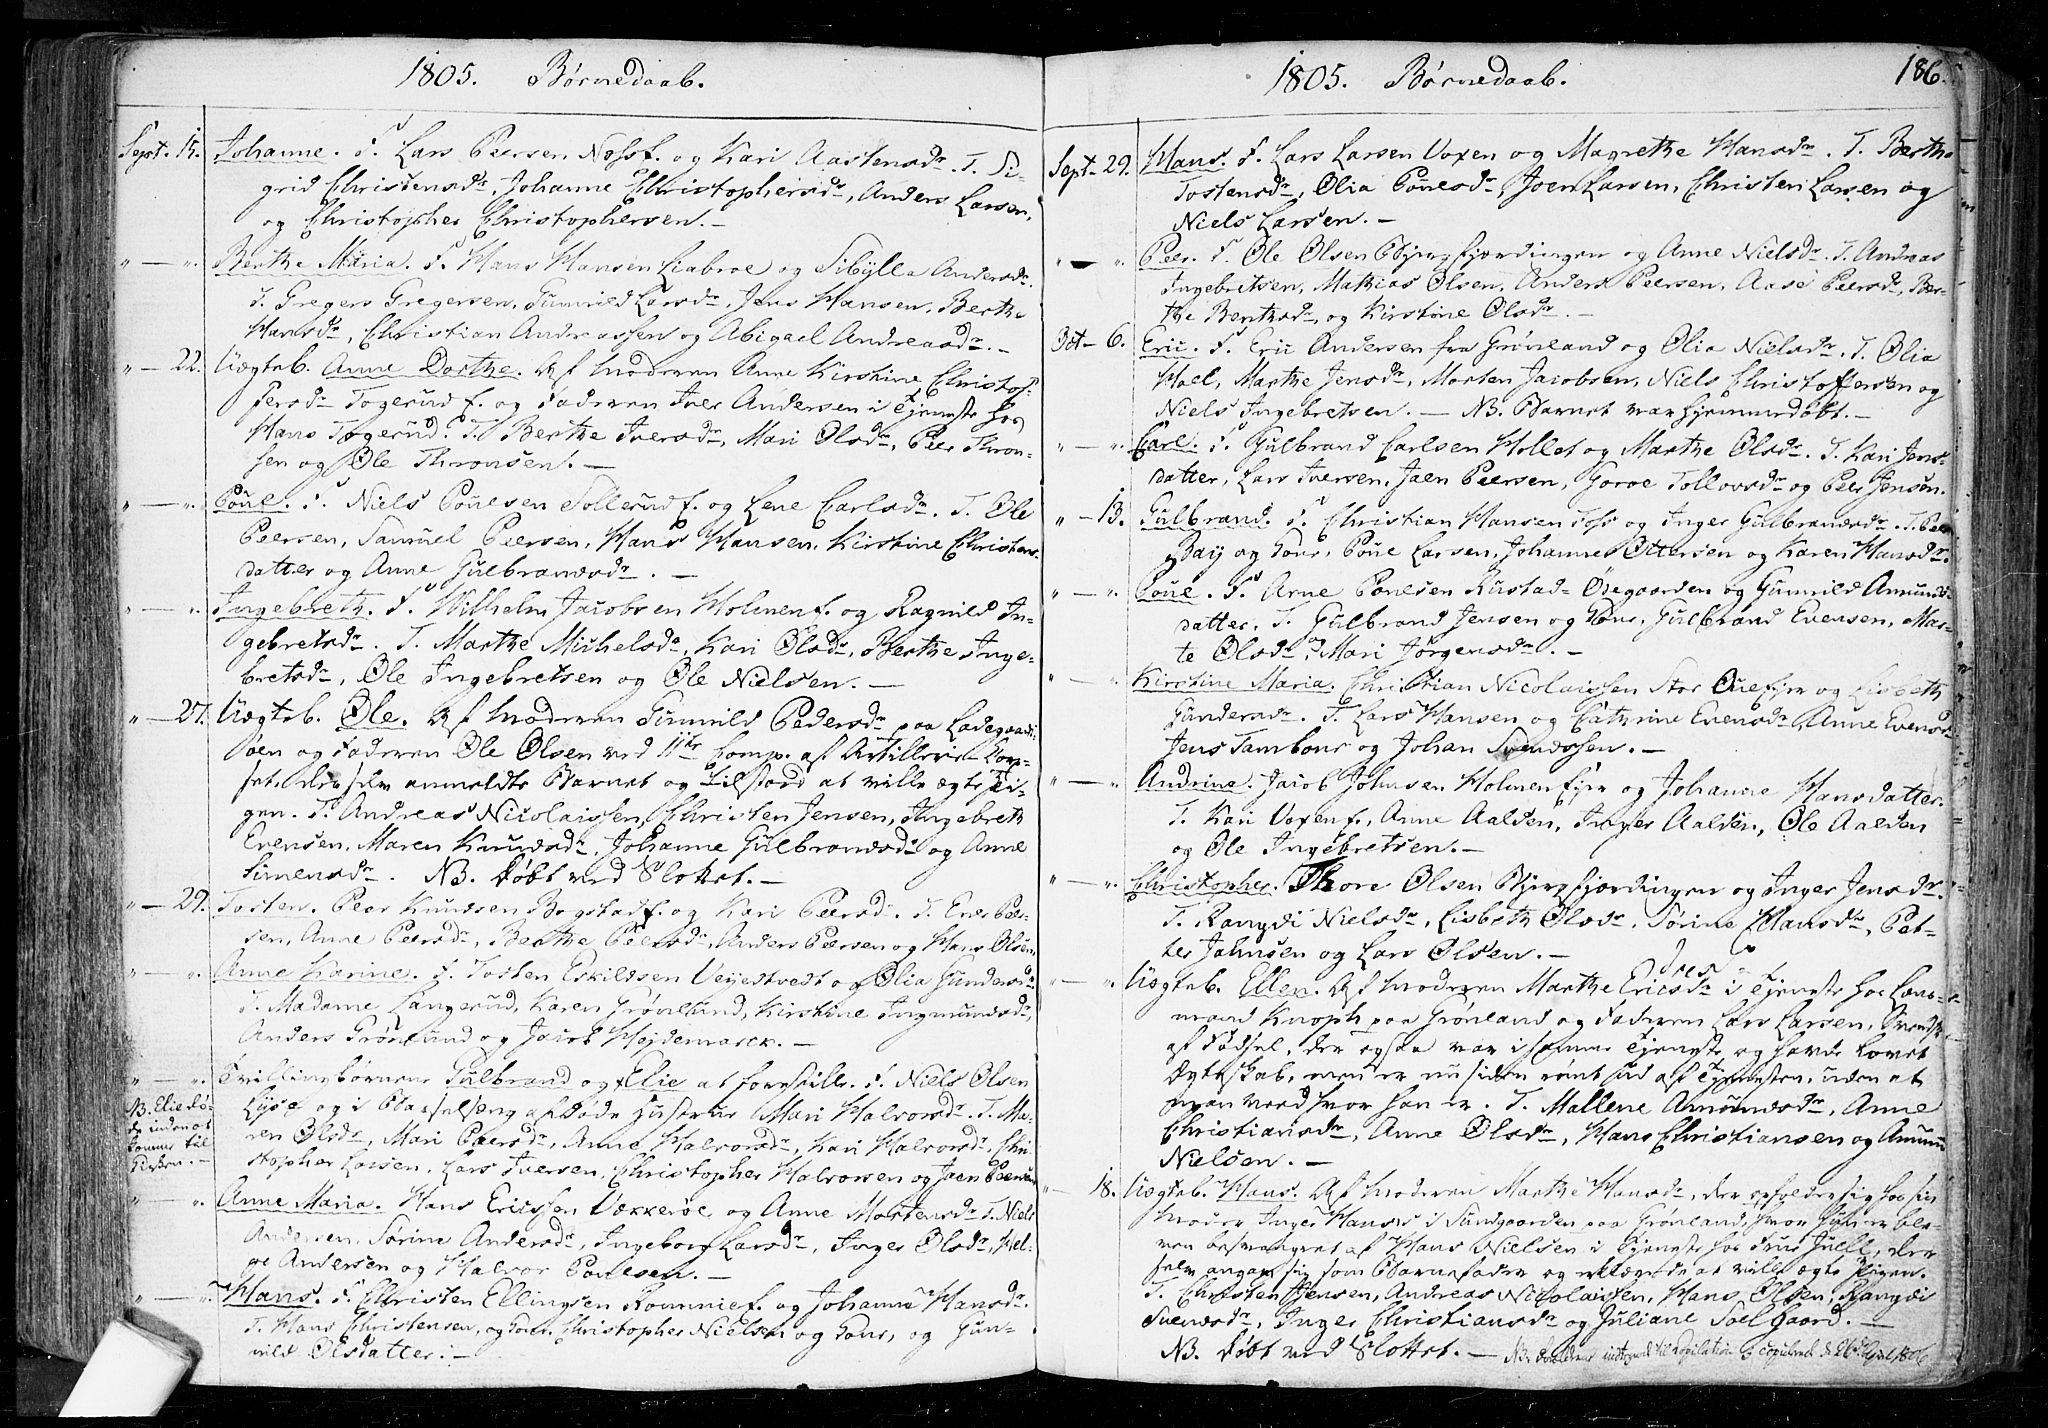 1805. Børnedaab.
Sept. 15. Johanne. F. Lars Peersen Næss f. og Kari Aastensdr. T. Si-
grid Christensdr, Johanne Christophersdr, Anders Larsen,
og Christopher Christophersen. —
" — ". Berthe Maria. F. Hans Hansen Liabroe og Sibylla Andersdr.
T. Gregers Gregersen, Gunnild Larsdr, Jens Hansen, Berthe
Hansdr, Christian Andreassen og Abigael Andreasdr. —
" — 22. Uægteb. Anne Dorthe. Af Moderen Anne Kirstine Christof-
fersdr Togerud f. og Faderen Iver Andersen i Tjeneste hos
Hans Togerud. T. Berthe Iversdr, Mari Olsdr, Peer Thron-
sen og Ole Thronsen. —
" — ". Poul. F. Niels Poulsen Sollerud f. og Lene Carlsdr. T. Ole
Peersen, Samuel Peersen, Hans Hansen, Kirstine Christens-
datter og Anne Gulbrandsdr. —
" — ". Ingebreth. F. Wilhelm Jacobsen Holmen f. og Ragnild In-
gebretsdr. T. Marthe Michelsdr, Kari Olsdr, Berthe Inge-
bretsdr, Ole Ingebretsen og Ole Nielsen. —
" — 27. Uægteb. Ole. Af Moderen Gunnild Pedersdr paa Ladegaards-
øen og Faderen Ole Olsen ved 11te Comp. af Artillerie-Corp-
set. Denne selv anmeldte Barnet og tilstoed at ville ægte Pi-
gen. T. Andreas Nicolaissen, Christen Jensen, Ingebreth
Evensen, Maren Knudsdr, Johanne Gulbrandsdr og Anne
Simensdr. NB. døbt ved Slottet. —
" — 29. Tosten. Peer Knudsen Bogstad f. og Kari Peersdr. T. Ener Peer-
sen, Anne Peersdr, Berthe Peersdr, Anders Peersen og Hans Olsen.
" — ". Anne Karine. F. Tosten Eskildsen Vejedtvedt og Olia Gundersdr.
T. Madame Langerud, Karen Grønlund, Kirstine Ingmundsdr,
Anders Grønlund og Jacob Hejdemarck. —
" — ". Tvillingbørnene Gulbrand og Elie at forestille. F. Niels Olsen
NB. Elie dø-
de inden at
komme til
Kirken. —
Lysa og i Barselseng af Døde Hustrue Mari Halvorsdr. T. Ma-
ren Olsdr, Mari Peersdr, Anne Halvorsdr, Kari Halvorsdr, Chri-
stopher Larsen, Lars Iversen, Christopher Halvorsen og Joen Peersen
" — ". Anne Maria. Hans Ericssen Vækkerøe og Anne Mortensdr. T. Niels
Andersen, Sørine Andersdr, Ingeborg Larsdr, Inger Olsdr, Hel-
ge Andersen og Halvor Poulsen. —
" — ". Hans. F. Christen Ellingsen Rounnie f. og Johanne Hansdr.
T. Hans Christensen, og Cone, Christopher Nielsen og Cone, og Gun-
nild Olsdatter. —
1805. Børnedaab. 186.
Sept. 29. Hans. F. Lars Larsen Voxen og Magrethe Hansdr. T. Berthe
Tostensdr, Olia Poulsdr, Joen Larsen, Christen Larsen og
Niels Larsen. —
" — ". Peer. F. Ole Olsen Bjergfjerdingen og Anne Nielsdr. T. Andreas
Ingebretsen, Mathias Olsen, Anders Peersen, Aase Peersdr, Ber-
the Bentsdr, og Kirstine Olsdr. —
Oct. 6. Eric. F. Eric Andersen fra Grønland og Olia Nielsdr. T. Olia
Hoel, Marthe Jensdr, Morten Jacobsen, Niels Christoffersen og
Niels Ingebretsen. — NB. Barnet var hjemmedøbt. —
" — ". Carl. F. Gulbrand Carlsen Hollet og Marthe Olsdr. T. Kari Jens-
datter, Lars Iversen, Joen Peersen, Goroe Tollovsdr og Peer Jensen.
" — 13. Gulbrand. F. Christian Hansen Foss og Inger Gulbrandsdr. T. Peer
Baij og Cone, Poul Larsen, Johanne Ottersen og Karen Hansdr.
" — ". Poul. F. Arne Poulsen Rustad-Ødegaarden og Gunnild Amunds-
datter. T. Gulbrand Jensen og Cone, Gulbrand Evensen, Mar-
te Olsdr og Mari Jørgensdr. —
" — ". Kirstine Maria. Christian Nicolaissen Stor Ouefjer og Lisbeth
Gundersdr. T. Lars Hansen og Cathrine Evensdr, Anne Evensdr
Jens Tambour og Johan Svendssen. —
" — ". Andrine. Jacob Johnsen Holmen Ejer og Johanne Hansdatter.
T. Kari Voxen f., Anne Aalden, Inger Aalden, Ole Aalden
og Ole Ingebretsen. —
" — ". Christopher. Thore Olsen Bjergfjerdingen og Inger Jensdr.
T. Rangdi Nielsdr, Lisbeth Olsdr, Sørine Hansdr, Pet-
ter Johnsen og Lars Olsen. —
" — ". Uægteb. Ellen. Af Moderen Marthe Ericsdr i Tjeneste hos Lens-
mand Knoph paa Grønland og Faderen Lars Larsen, Svensk
af Fødsel, der ogsaa var i samme Tjeneste, og havde lovet
Ægteskab, men er nu siden rømt ud af Tjenesten, uden at
man veed hvor han er. T. Mallene Amundsdr, Anne
Christiansdr, Anne Olsdr, Hans Christiansen og Amund
Nielsen. —
" — 18. Uægteb. Hans. Af Moderen Marthe Hansdr, der opholder sig hos sin
Moder Inger Hans's i Sundgaarden paa Grønland, hvor hun er ble-
ven besvangret af Hans Nielsen i Tjeneste hos Frue Juell, der
selv angav sig som Barnefader og erklærede at ville ægte Pigen.
T. Christen Jensen, Andreas Nicolaissen, Hans Olsen, Rangdi
Svendsdr, Inger Christiansdr og Juliane Soelgaard. —
NB. døbt ved Slottet. — NB. Forældrene indtegnede til Copulation og copulerede d. 26de April 1806